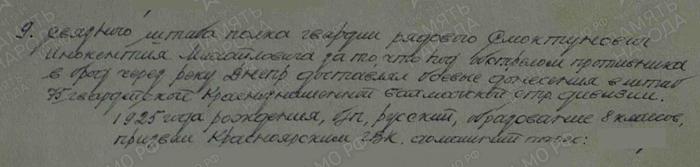 9. связного штаба полка гвардии рядового Смоктунович
Инокентия Михайловича за то, что под обстрелом противника
в брод через реку Днепр доставлял боевые донесения в штаб
75 гвардейской Краснознаменной Бахмачской стр. дивизии.
1925 года рождения, б/п, русский, образование 8 классов,
призван Красноярским ГВК. домашний адрес: